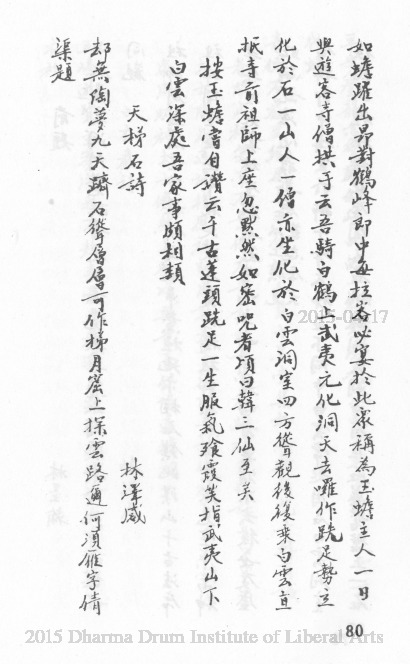 如蟾躍出昂對鶴峰郎中每拉客必宴於此眾稱為玉蟾主人一日
與遊客寺僧拱手云吾騎白鶴上武夷元化洞天去囉作跣足勢立
化於石一山人一僧亦坐化於白雲洞室四方聳觀後復乘白雲直
抵寺前祖師上座忽默然如密咒者頃曰韓三仙至矣
按玉蟾嘗自讚云千古蓬頭跣足一生服氣飡霞笑指武夷山下
白雲深處吾家事頗相類
天梯石詩
林洋威
却無陶夢九天躋石聳層層可作梯月窟上探雲路邇何須雁字倩
渠題
2015-04-17
80
2015 Dharma Drum Institute of Liberal Arts